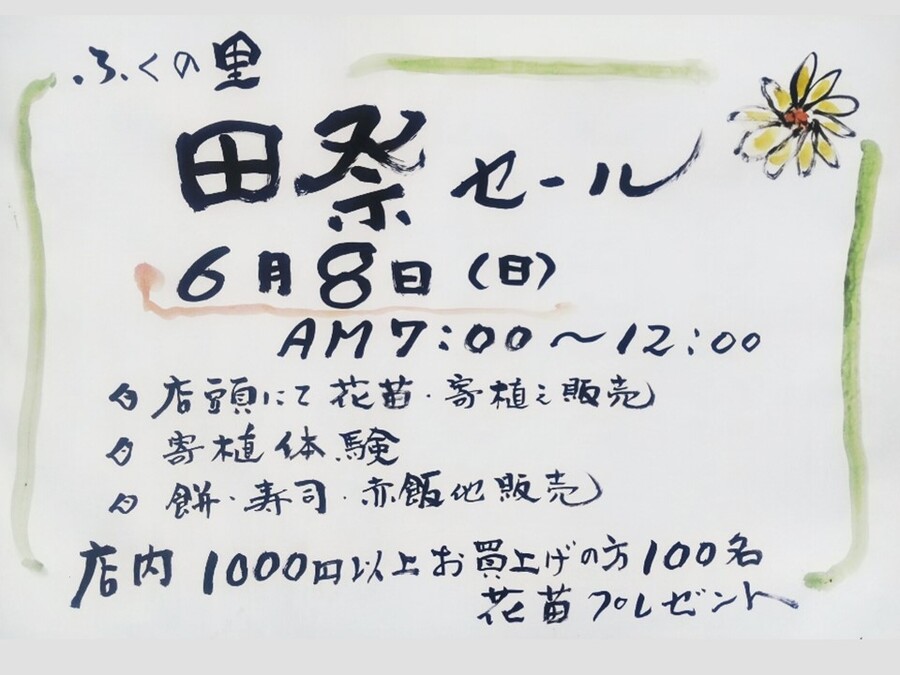 ふくの里
田祭セール
6月8日(日)
AM7:00〜12:00
店頭にて花苗・寄植え販売
寄植体験
餅・寿司・赤飯他販売
店内1000円以上お買上げの方100名
花苗プレゼント